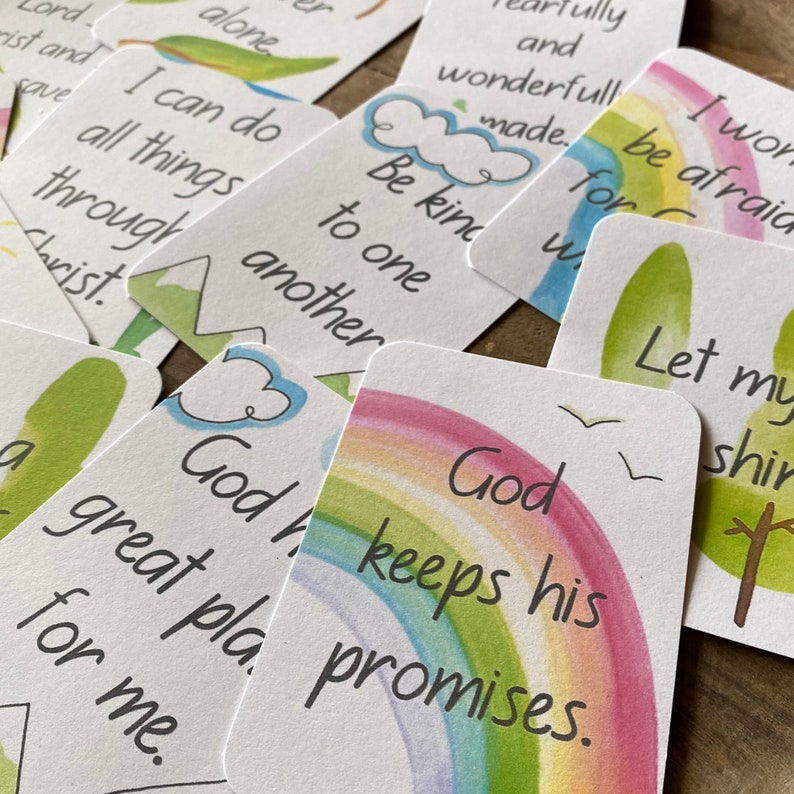 Lord
and
save
alone.
fearfully
and
wonderfully
made.
I can do
all things
through
Christ.
Be
to one
another
I
be afraid
for
Let my
a
God
great
for me.
God
keeps his
promises.